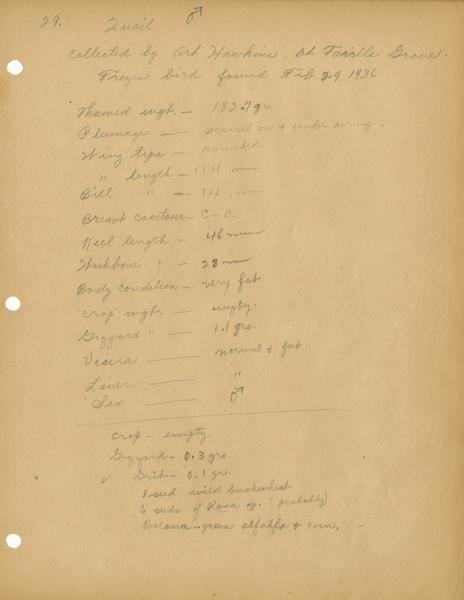 29. Quail ♂
collected by Art Hawkins, at Faville Grove.
Frozen bird found Feb 29, 1936
Thawed wgt. — 182.7 gr
Plumage — scarred on & under wing.
Wing tips — rounded
" length — 114 mm
Bill " — 14 mm
Breast contour — C-B.
Keel length — 46 mm
Wishbone " — 28 mm
Body condition — very fat
Crop wgt. — empty.
Gizzard " — 1.1 grs.
Visera — normal & fat
Liver — "
Sex — ♂
Crop — empty
Gizzard — 0.3 grs.
✓ Grit — 0.1 gr.
1 seed wild buckwheat
6 seeds of Rosa sp. (probably)
Balance — green alfalfa & corn. —